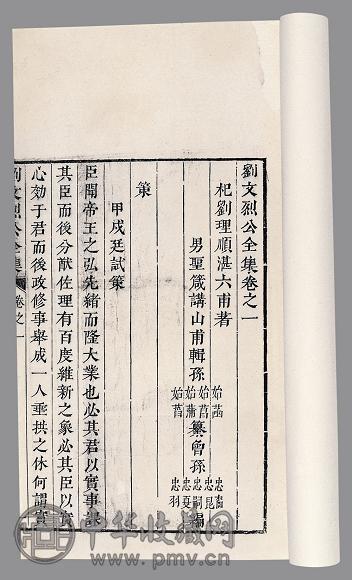 劉文烈公全集卷之一
杞劉理順湛六甫著
男聖箴講山甫輯孫
始菡
始菖
始蒲
始菖
纂曾孫
忠嗣
忠夏
忠羽
編
策
甲戌廷試策
臣聞帝王之弘先緒而隆大業也必其君以實事
其臣而後分猷佐理有百度維新之象必其臣以實
心効于君而後政修事舉成一人垂拱之休何謂實
劉文烈公全集
卷之一
中华收藏网
www.pmv.cn